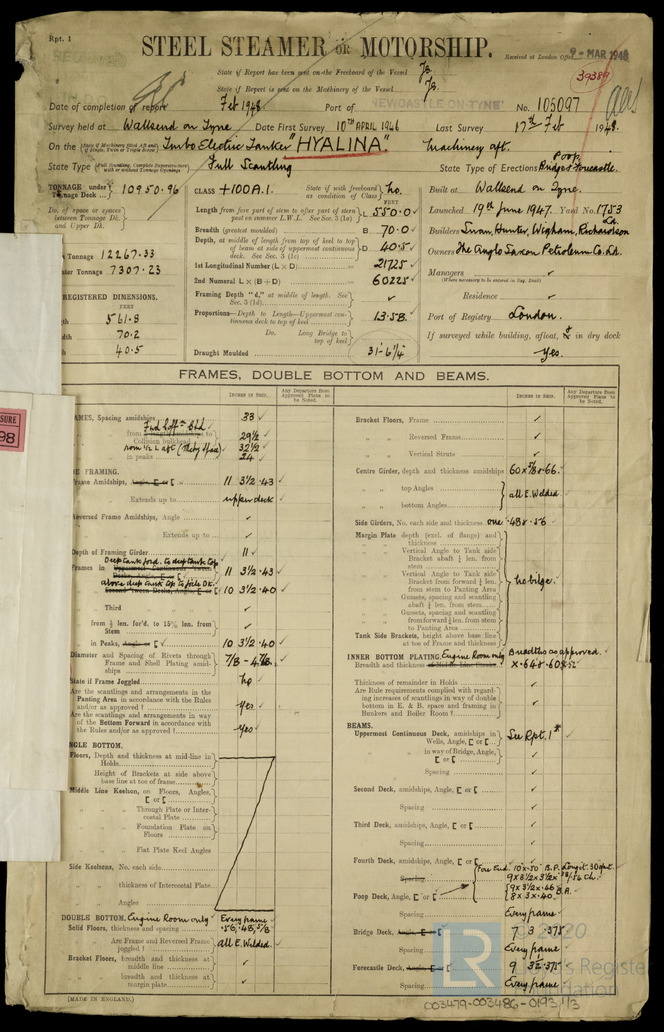 Rpt. 1
STEEL STEAMER OR MOTORSHIP.
Received at London Office 9 - MAR 1948
State if Report has been sent on the Freeboard of the Vessel
State if Report is sent on the Machinery of the Vessel
39389
Date of completion of report Feb 1948 Port of NEWCASTLE-ON-TYNE No. 105097
Survey held at Wallsend on Tyne Date First Survey 10TH APRIL 1946 Last Survey 17th Feb 1948.
On the Turbo Electric Tanker "HYALINA" Machinery aft.
State Type Full Scantling State Type of Erections Poop, Bridge & Forecastle.
TONNAGE under Tonnage Deck 10950.96
Do. of space or spaces between Tonnage Dk. and Upper Dk.
Tonnage 12267.33
Tonnage 7307.23
REGISTERED DIMENSIONS.
FEET
561.8
70.2
40.5
CLASS +100A.1. State if with freeboard as condition of Class No.
Length from fore part of stem to after part of stern post on summer L.W.L. See Sec. 3 (1a) L 550.0
Breadth (greatest moulded) B 70.0
Depth, at middle of length from top of keel to top of beam at side of uppermost continuous deck. See Sec. 3 (1c) D 40.5
1st Longitudinal Number (L × D) 21725
2nd Numeral L × (B + D) 60225
Framing Depth "d," at middle of length. See Sec. 3 (1d)
Proportions—Depth to Length—Uppermost continuous deck to top of keel 13.58
Do. Long Bridge to top of keel
Draught Moulded 31'-6¼"
Built at Wallsend on Tyne.
Launched 19th June 1947. Yard No. 1753
Builders Swan, Hunter, Wigham, Richardson Ltd.
Owners The Anglo Saxon Petroleum Co. Ltd.
Managers
(Where necessary to be entered in Reg. Book)
Residence
Port of Registry London.
If surveyed while building, afloat, & in dry dock
Yes.
FRAMES, DOUBLE BOTTOM AND BEAMS.
INCHES IN SHIP. Any Departure from Approved Plans to be Noted.
FRAMES, Spacing amidships 33
Collision bulkhead 29½
from ½ L aft 32½
in peaks 24
FRAMING.
Frame Amidships, 11 3½ .43
Extends up to upper deck
Reversed Frame Amidships, Angle
Extends up to
Depth of Framing Girder 11
Deep tank ford. to deep tank top
Frames in 11 3½ .43
above deep tank top to f'cle Dk. 10 3½ .40
Third
from ¼ len. for'd. to 15% len. from Stem
in Peaks, 10 3½ .40
Diameter and Spacing of Rivets through Frame and Shell Plating amidships 7/8 -
State if Frame Joggled No
Are the scantlings and arrangements in the Panting Area in accordance with the Rules and/or as approved ? Yes
Are the scantlings and arrangements in way of the Bottom Forward in accordance with the Rules and/or as approved ? Yes
SINGLE BOTTOM.
Floors, Depth and thickness at mid-line in Holds
Height of Brackets at side above base line at toe of frame
Middle Line Keelson, on Floors, Angles, [ or [
Through Plate or Intercostal Plate
Foundation Plate on Floors
Flat Plate Keel Angles
Side Keelsons, No. each side
thickness of Intercostal Plate
Angles
DOUBLE BOTTOM. Engine Room only Every frame
Solid Floors, thickness and spacing .56, .48, 5/8
Are Frame and Reversed Frame joggled ? all E. Welded.
Bracket Floors, breadth and thickness at middle line
breadth and thickness at margin plate
(MADE IN ENGLAND.)
INCHES IN SHIP. Any Departure from Approved Plans to be Noted.
Bracket Floors, Frame
Reversed Frame
Vertical Struts
Centre Girder, depth and thickness amidships 60 × 5/8 & .66.
top Angles
bottom Angles
all E. Welded
Side Girders, No. each side and thickness one .48 & .56
Margin Plate depth (excl. of flange) and thickness
Vertical Angle to Tank side Bracket abaft ¼ len. from stem
Vertical Angle to Tank side Bracket from forward ¼ len. from stem to Panting Area
Gussets, spacing and scantling abaft ¼ len. from stem
Gussets, spacing and scantling from forward ¼ len. from stem to Panting Area
Tank Side Brackets, height above base line at toe of Frame and thickness
No bilge.
INNER BOTTOM PLATING. Engine Room only Breadths as approved.
Breadth and thickness × .64 & .60 & .52
Thickness of remainder in Holds
Are Rule requirements complied with regarding increases of scantlings in way of double bottom in E. & B. space and framing in Bunkers and Boiler Room ?
BEAMS.
Uppermost Continuous Deck, amidships in Wells, Angle, [ or [ See Rpt. 1*
in way of Bridge, Angle, [ or [
Spacing
Second Deck, amidships, Angle, [ or [
Spacing
Third Deck, amidships, Angle, [ or [
Spacing
Fourth Deck, amidships, Angle, [ or [
Spacing
Poop Deck, Angle, [ or [
Spacing Every frame
Bridge Deck, 7 3 .375
Spacing Every frame
Forecastle Deck, 9 3½ .375
Spacing Every frame
LR
© 2020
Lloyd's Register
Foundation
003479-003486-0193 1/3
SURE
98